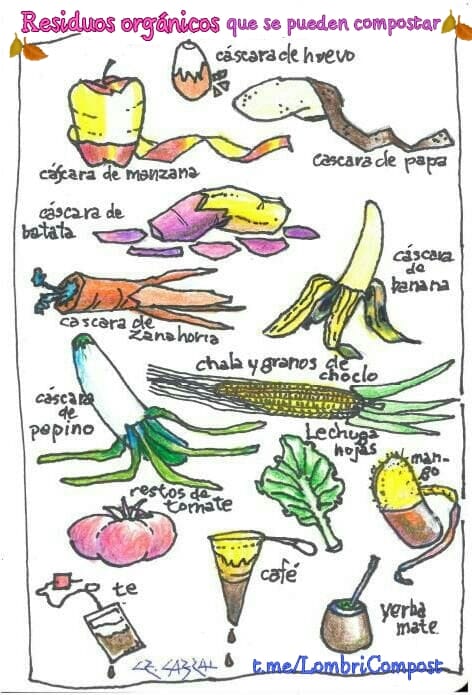 Residuos orgánicos que se pueden compostar
cáscara de huevo
cáscara de manzana
cascara de papa
cáscara de
batata
cáscara
de
banana
cascara de
zanahoria
chala y granos de
choclo
cáscara
de
pepino
Lechuga
hojas
man-
go
restos de
tomate
te
café
yerba
mate
CR. CABRAL
t.me/LombriCompost